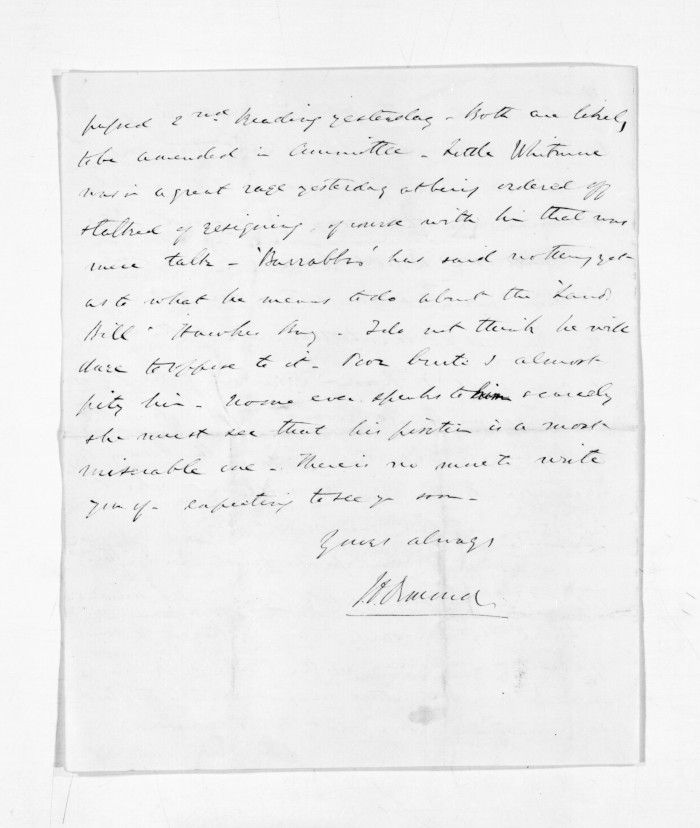 passed 2nd Reading yesterday - Both are likely
to be amended in Committee - Little Whitmore
was in a great rage yesterday at being ordered off
& talked of resigning, of course with him that was
mere talk - 'Barrabbas' has said nothing yet
as to what he means to do about the 'Land
Bill' Hawkes Bay - I do not think he will
dare to oppose to it - Poor brute I almost
pity him - No one ever speaks to him scarcely
& he must see that his position is a most
miserable one - There is no more to write
you of - expecting to see you soon -
Yours always
J D Ormond